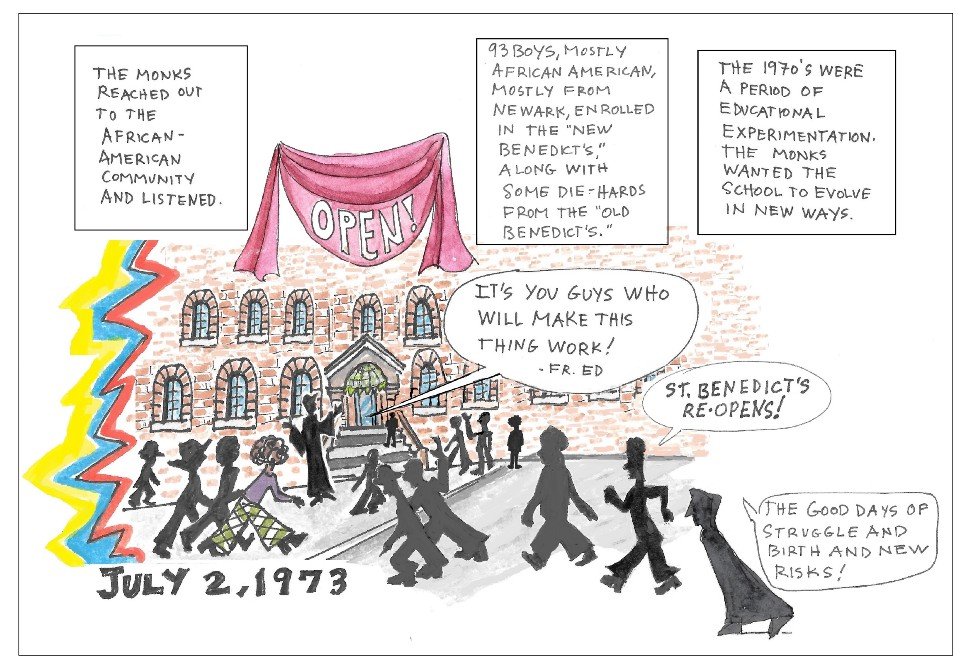 THE MONKS
REACHED OUT
TO THE
AFRICAN-
AMERICAN
COMMUNITY
AND LISTENED.
93 BOYS, MOSTLY
AFRICAN AMERICAN,
MOSTLY FROM
NEWARK, ENROLLED
IN THE "NEW
BENEDICT'S,"
ALONG WITH
SOME DIE-HARDS
FROM THE "OLD
BENEDICT'S."
THE 1970'S WERE
A PERIOD OF
EDUCATIONAL
EXPERIMENTATION.
THE MONKS
WANTED THE
SCHOOL TO EVOLVE
IN NEW WAYS.
OPEN!
IT'S YOU GUYS WHO
WILL MAKE THIS
THING WORK!
- FR. ED
ST. BENEDICT'S
RE-OPENS!
THE GOOD DAYS OF
STRUGGLE AND
BIRTH AND NEW
RISKS!
JULY 2, 1973